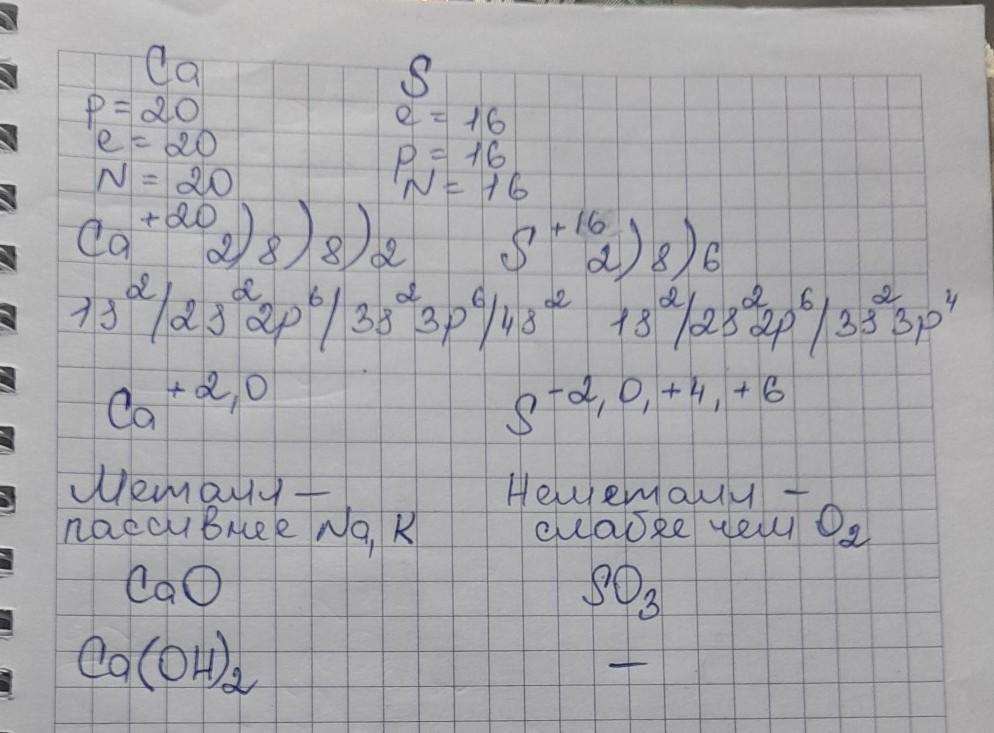 Ca S
p = 20 e = 16
e = 20 p = 16
N = 20 N = 16
Ca +20 2)8)8)2 S +16 2)8)6
1s²/2s²2p⁶/3s²3p⁶/4s² 1s²/2s²2p⁶/3s²3p⁴
Ca +2,0 S -2, 0, +4, +6
Металл – Неметалл –
пассивнее Na, K слабее чем O₂
CaO SO₃
Ca(OH)₂ —